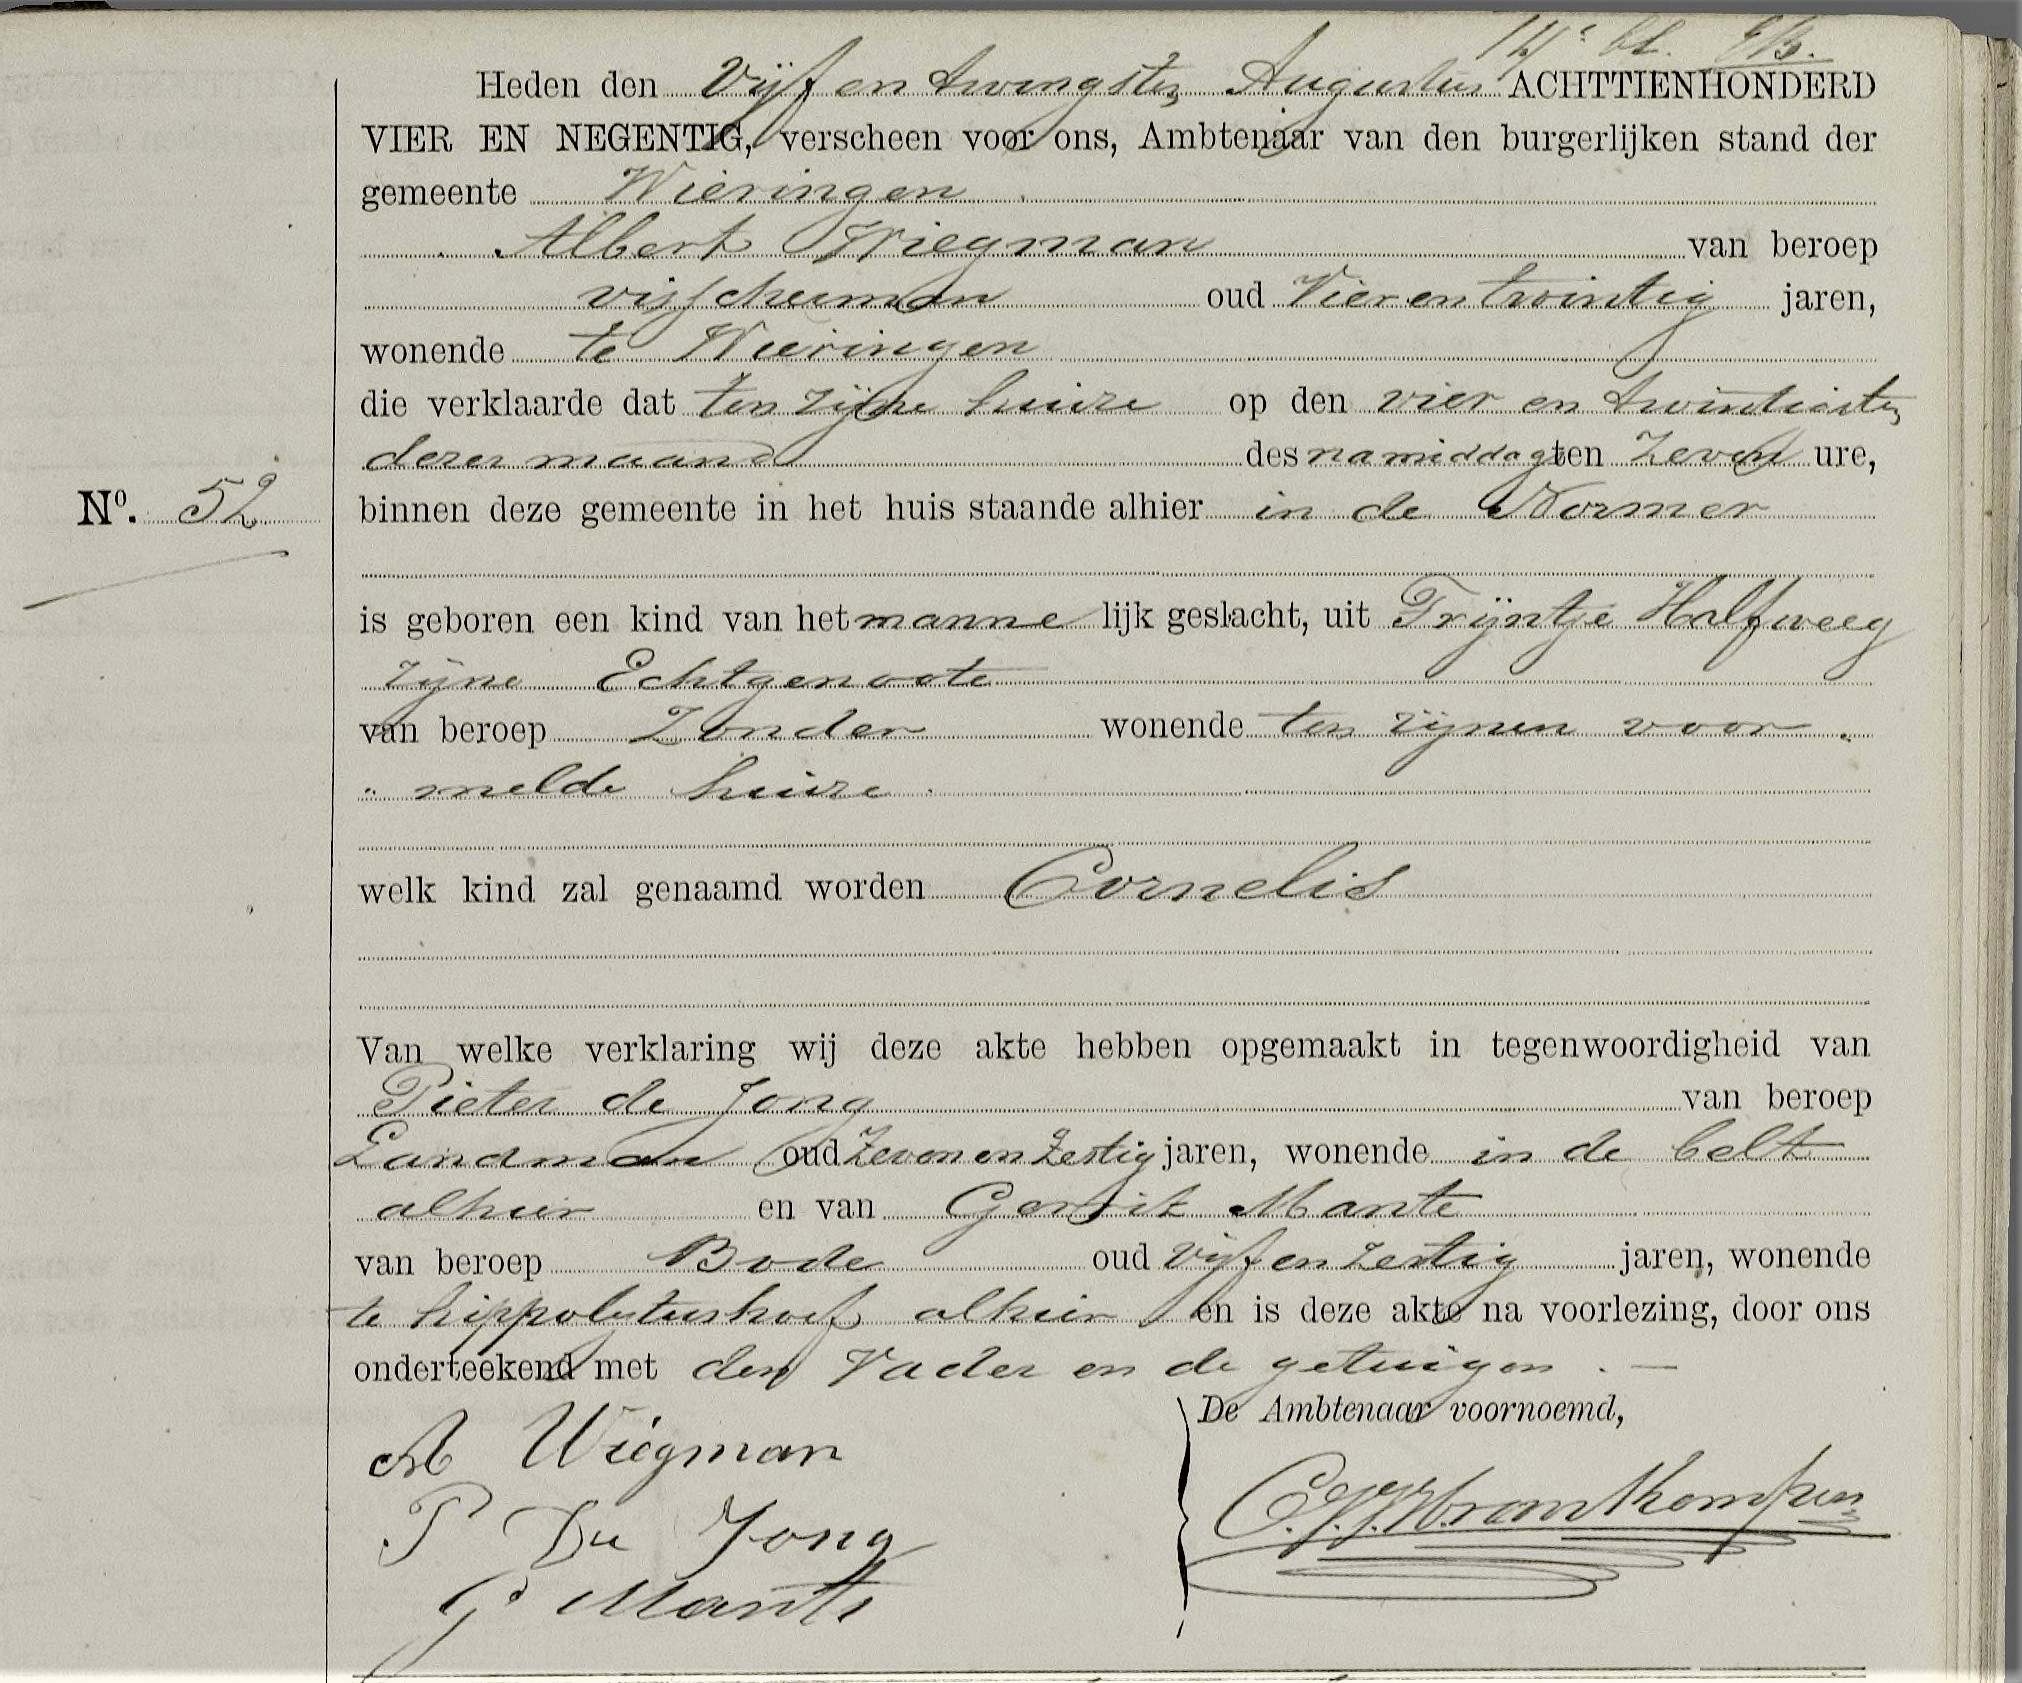 14e bl.
Heden den Vijf en twingsten Augustus ACHTTIENHONDERD
VIER EN NEGENTIG, verscheen voor ons, Ambtenaar van den burgerlijken stand der
gemeente Wieringen
Albert Wiegman van beroep
visscherman oud Vier en twintig jaren,
wonende te Wieringen
die verklaarde dat ten zijne huize op den vier en twintigsten
dezer maand des namiddags ten Zeven ure,
binnen deze gemeente in het huis staande alhier in de Normer
No. 52
is geboren een kind van het mannelijk geslacht, uit Trijntje Halfweeg
zijne Echtgenoote
van beroep Zonder wonende ten zijnen voor
melde huize.
welk kind zal genaamd worden Cornelis
Van welke verklaring wij deze akte hebben opgemaakt in tegenwoordigheid van
Pieter de Jong van beroep
Landman oud Zeven en Zestig jaren, wonende in de belt
alhier en van Gerrit Mante
van beroep Bode oud vijf en zestig jaren, wonende
te hippolytushoef alhier en is deze akte na voorlezing, door ons
onderteekend met den Vader en de getuigen. —
De Ambtenaar voornoemd,
A Wiegman
P De Jong
G Mante